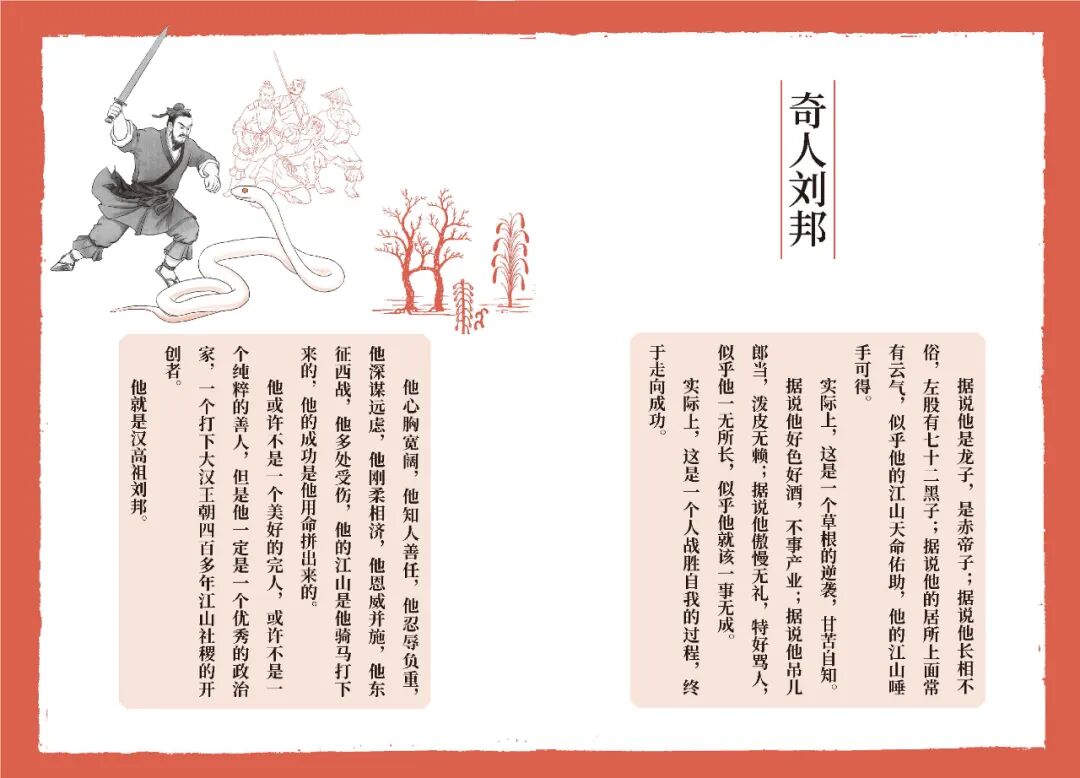 奇人刘邦
据说他是龙子，是赤帝子；据说他长相不
俗，左股有七十二黑子；据说他的居所上面常
有云气，似乎他的江山天命佑助，他的江山唾
手可得。
实际上，这是一个草根的逆袭，甘苦自知。
据说他好色好酒，不事产业；据说他吊儿
郎当，泼皮无赖；据说他傲慢无礼，特好骂人，
似乎他一无所长，似乎他就该一事无成。
实际上，这是一个人战胜自我的过程，终
于走向成功。
他心胸宽阔，他知人善任，他忍辱负重，
他深谋远虑，他刚柔相济，他恩威并施，他东
征西战，他多处受伤，他的江山是他骑马打下
来的，他的成功是他用命拼出来的。
他或许不是一个美好的完人，或许不是一
个纯粹的善人，但是他一定是一个优秀的政治
家，一个打下大汉王朝四百多年江山社稷的开
创者。
他就是汉高祖刘邦。